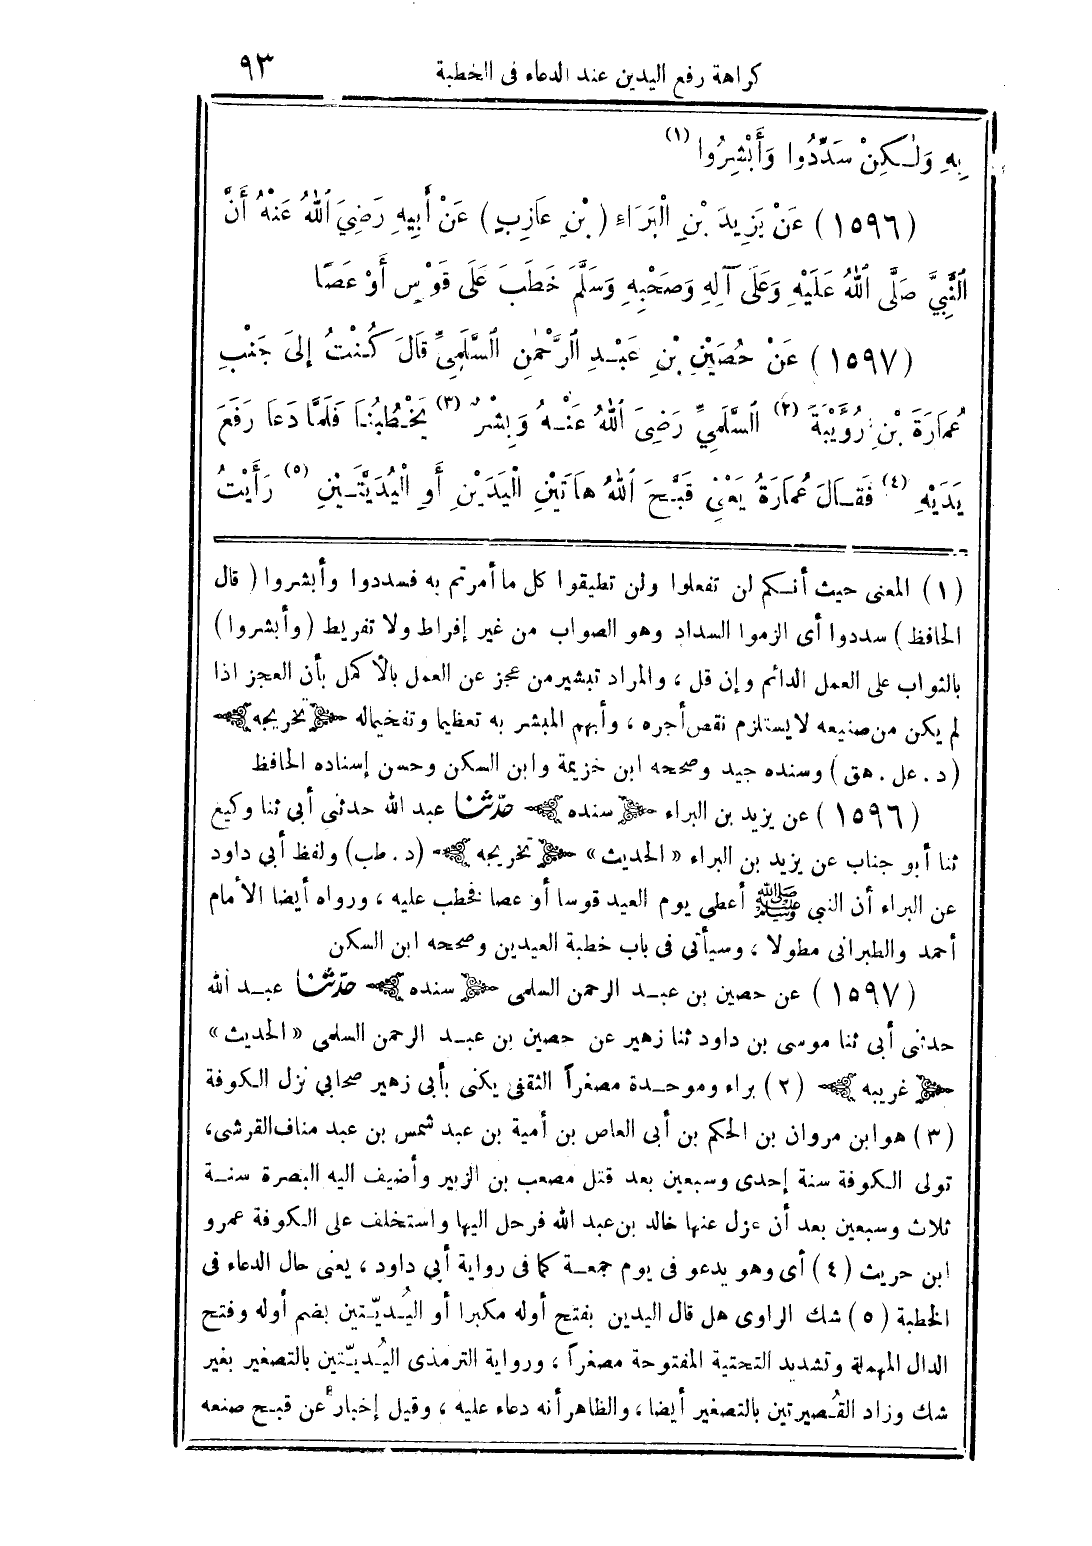 كراهة رفع اليدين عند الدعاء فى الخطبة ٩٣
بِهِ وَلَـكِنْ سَدِّدُوا وَأَبْشِرُوا (١)
(١٥٩٦) عَنْ يَزِيدَ بْنِ الْبَرَاءِ (بْنِ عَازِبٍ) عَنْ أَبِيهِ رَضِيَ اللهُ عَنْهُ أَنَّ
النَّبِيَّ صَلَّى اللهُ عَلَيْهِ وَعَلَى آلِهِ وَصَحْبِهِ وَسَلَّمَ خَطَبَ عَلَى قَوْسٍ أَوْ عَصًا
(١٥٩٧) عَنْ حُصَيْنِ بْنِ عَبْدِ الرَّحْمٰنِ السَّلَمِيِّ قَالَ كُنْتُ إِلَى جَنْبِ
عُمَارَةَ بْنِ رُوَيْبَةَ (٢) السَّلَمِيِّ رَضِيَ اللهُ عَنْهُ وَبِشْرٌ (٣) يَخْطُبُنَا فَلَمَّا دَعَا رَفَعَ
يَدَيْهِ (٤) فَقَالَ عُمَارَةُ يَعْنِي قَبَّحَ اللهُ هَاتَيْنِ الْيَدَيْنِ أَوِ الْيُدَيَّتَيْنِ (٥) رَأَيْتُ
(١) المعنى حيث أنكم لن تفعلوا ولن تطيقوا كل ما أمرتم به فسددوا وأبشروا (قال
الحافظ) سددوا أى الزموا السداد وهو الصواب من غير إفراط ولا تفريط (وأبشروا)
بالثواب على العمل الدائم وإن قل ، والمراد تبشير من عجز عن العمل بالأكمل بأن العجز اذا
لم يكن من صنيعه لا يستلزم نقص أجره ، وأبهم المبشر به تعظيما وتفخيما له تخريجه
(د . عل . هق) وسنده جيد وصححه ابن خزيمة وابن السكن وحسن إسناده الحافظ
(١٥٩٦) عن يزيد بن البراء سنده حدّثنا عبد الله حدثنى أبى ثنا وكيع
ثنا أبو جناب عن يزيد بن البراء «الحديث» تخريجه (د . طب) ولفظ أبى داود
عن البراء أن النبى ﷺ أعطى يوم العيد قوسا أو عصا فخطب عليه ، ورواه أيضا الأمام
أحمد والطبرانى مطولا ، وسيأتى فى باب خطبة العيدين وصححه ابن السكن
(١٥٩٧) عن حصين بن عبد الرحمن السلمى سنده حدّثنا عبد الله
حدثنى أبى ثنا موسى بن داود ثنا زهير عن حصين بن عبد الرحمن السلمى «الحديث»
غريبه (٢) براء وموحدة مصغراً الثقفى يكنى بأبى زهير صحابى نزل الكوفة
(٣) هو ابن مروان بن الحكم بن أبى العاص بن أمية بن عبد شمس بن عبد مناف القرشى،
تولى الكوفة سنة إحدى وسبعين بعد قتل مصعب بن الزبير وأضيف اليه البصرة سنة
ثلاث وسبعين بعد أن عزل عنها خالد بن عبد الله فرحل اليها واستخلف على الكوفة عمرو
ابن حريث (٤) أى وهو يدعو فى يوم جمعة كما فى رواية أبى داود ، يعنى حال الدعاء فى
الخطبة (٥) شك الراوى هل قال اليدين بفتح أوله مكبرا أو اليُديّتين بضم أوله وفتح
الدال المهملة وتشديد التحتية المفتوحة مصغراً ، ورواية الترمذى اليُديّتين بالتصغير بغير
شك وزاد القُصيرتين بالتصغير أيضا ، والظاهر أنه دعاء عليه ، وقيل إخبار عن قبح صنعه